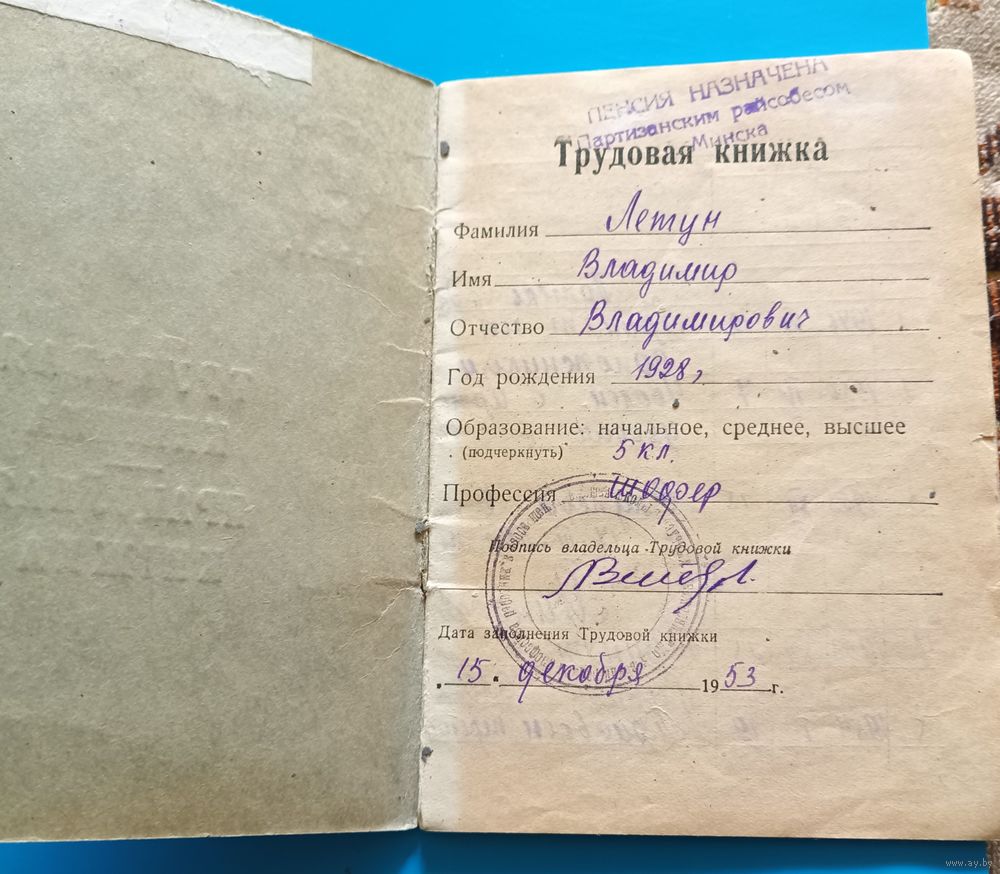 ПЕНСИЯ НАЗНАЧЕНА
Партизанским райсобесом
Минска
Трудовая книжка
Фамилия Летун
Имя Владимир
Отчество Владимирович
Год рождения 1928,
Образование: начальное, среднее, высшее
(подчеркнуть) 5 кл.
Профессия шофер
Подпись владельца Трудовой книжки
Дата заполнения Трудовой книжки
"15" декабря 1953 г.
www.ay.by